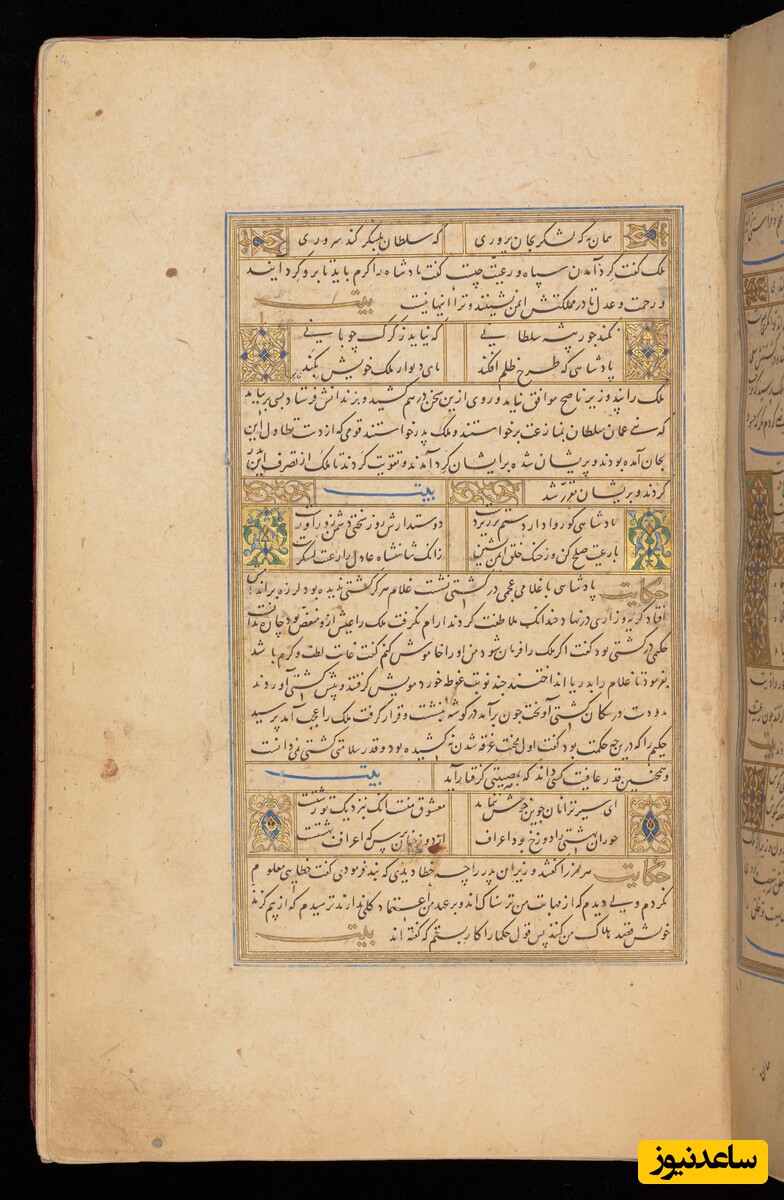 همان به که لشکر بجان پروری که سلطان بلشکر کند سروری
ملک گفت گرد آمدن سپاه و رعیت چیست گفت پادشاه را کرم باید تا برو گرد آیند
و رحمت و عدل تا در مملکتش ایمن نشینند و ترا اینها نیست بیت
نکند جور پیشه سلطانی که نیاید ز گرگ چوپانی
پادشاهی که طرح ظلم افکند پای دیوار ملک خویش بکند
ملک را پند وزیر ناصح موافق نیامد و روی ازین سخن درهم کشید و بزندانش فرستاد بسی برنیامد
که بنی عمان سلطان بمنازعت برخواستند و ملک پدر خواستند قومی که از دست تطاول این
بجان آمده بودند و پریشان شده برایشان گرد آمدند و تقویت کردند تا ملک از تصرف این
کردند و بریشان مقرر شد بیت
پادشاهی کو روا دارد ستم بر زیردست دوستدارش روز سختی دشمن زورآورست
با رعیت صلح کن وز جنگ خصم ایمن نشین زانک شاهنشاه عادل را رعیت لشکرست
حکایت پادشاهی با غلامی عجمی در کشتی نشست غلام هرگز کشتی ندیده بود لرزه براندامش
افتاد گریه و زاری در نهاد چندانک ملاطفت کردند آرام نگرفت ملک را عیش ازو منغص بود چاره ندانست
حکیمی در کشتی بود گفت اگر ملک را فرمان شود من او را خاموش کنم گفت غایت لطف و کرم باشد
بفرمود تا غلام را بدریا انداختند چند نوبت غوطه خورد مویش گرفتند و پیش کشتی آوردند
بدو دست در سکان کشتی آویخت چون برآمد در گوشه بنشست و قرار گرفت ملک را عجب آمد پرسید
حکیم را که درین چه حکمت بود گفت اول محنت غرقه شدن نکشیده بود و قدر سلامتی کشتی نمی دانست
و همچنین قدر عافیت کسی داند که بمصیبتی گرفتار آید بیت
ای سیر ترا نان جوین خوش ننماید معشوق منست آنک بنزدیک تو زشتست
حوران بهشتی را دوزخ بود اعراف از دوزخیان پرس که اعراف بهشتست
حکایت هرمز را گفتند وزیران پدر را چه خطا دیدی که بند فرمودی گفت خطایی معلوم
نکردم ولی دیدم که از مهابت من ترسناک اند و بر عهد من اعتماد کلی ندارند ترسیدم که از بیم گزند
خویش قصد هلاک من کنند پس قول حکما را کار بستم که گفته اند بیت
ساعدنیوز